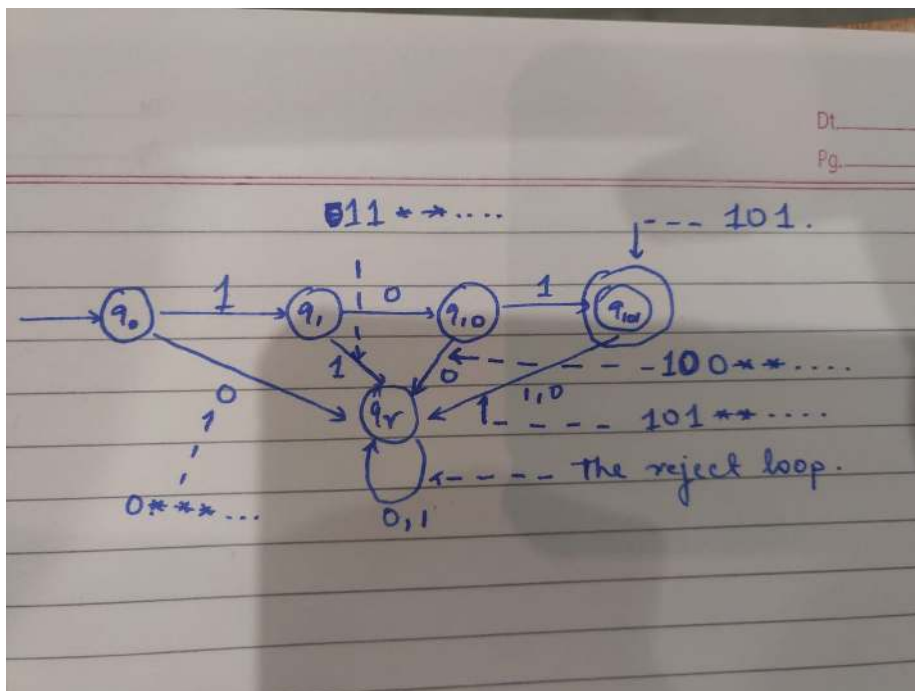 Dt.
Pg.
11 * * ....
--- 101.
1 0 1
q0 q1 q10 q101
1 0 - - - - - 100 * * ....
0 1,0
qr - - - - 101 * * ....
- - - - The reject loop.
0 * * * ...
0,1